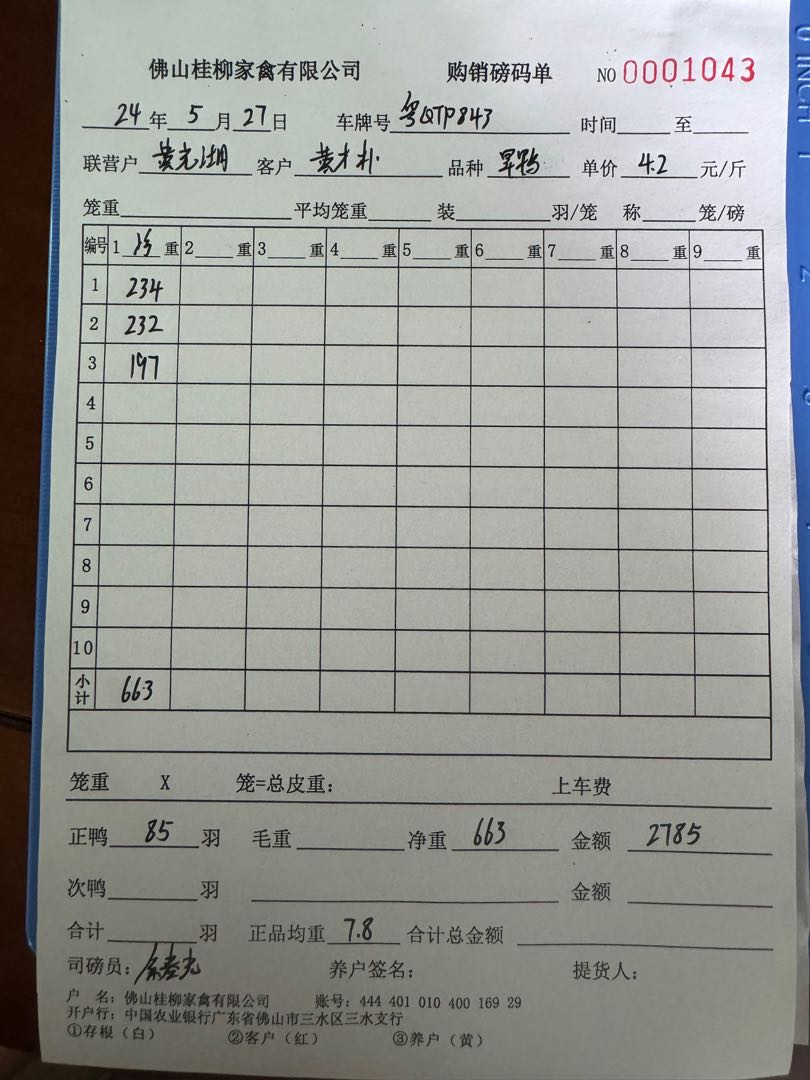 佛山桂柳家禽有限公司 购销磅码单 NO 0001043
24年 5月27日 车牌号 粤QTP843 时间 至
联营户 黄光湖 客户 黄才朴 品种 旱鸭 单价 4.2 元/斤
笼重 平均笼重 装 羽/笼 称 笼/磅
编号 1 净 重 2 重 3 重 4 重 5 重 6 重 7 重 8 重 9 重
1 234
2 232
3 197
4
5
6
7
8
9
10
小计 663
笼重 X 笼=总皮重: 上车费
正鸭 85 羽 毛重 净重 663 金额 2785
次鸭 羽 金额
合计 羽 正品均重 7.8 合计总金额
司磅员: 养户签名: 提货人:
户 名: 佛山桂柳家禽有限公司 账号: 444 401 010 400 169 29
开户行: 中国农业银行广东省佛山市三水区三水支行
①存根（白） ②客户（红） ③养户（黄）